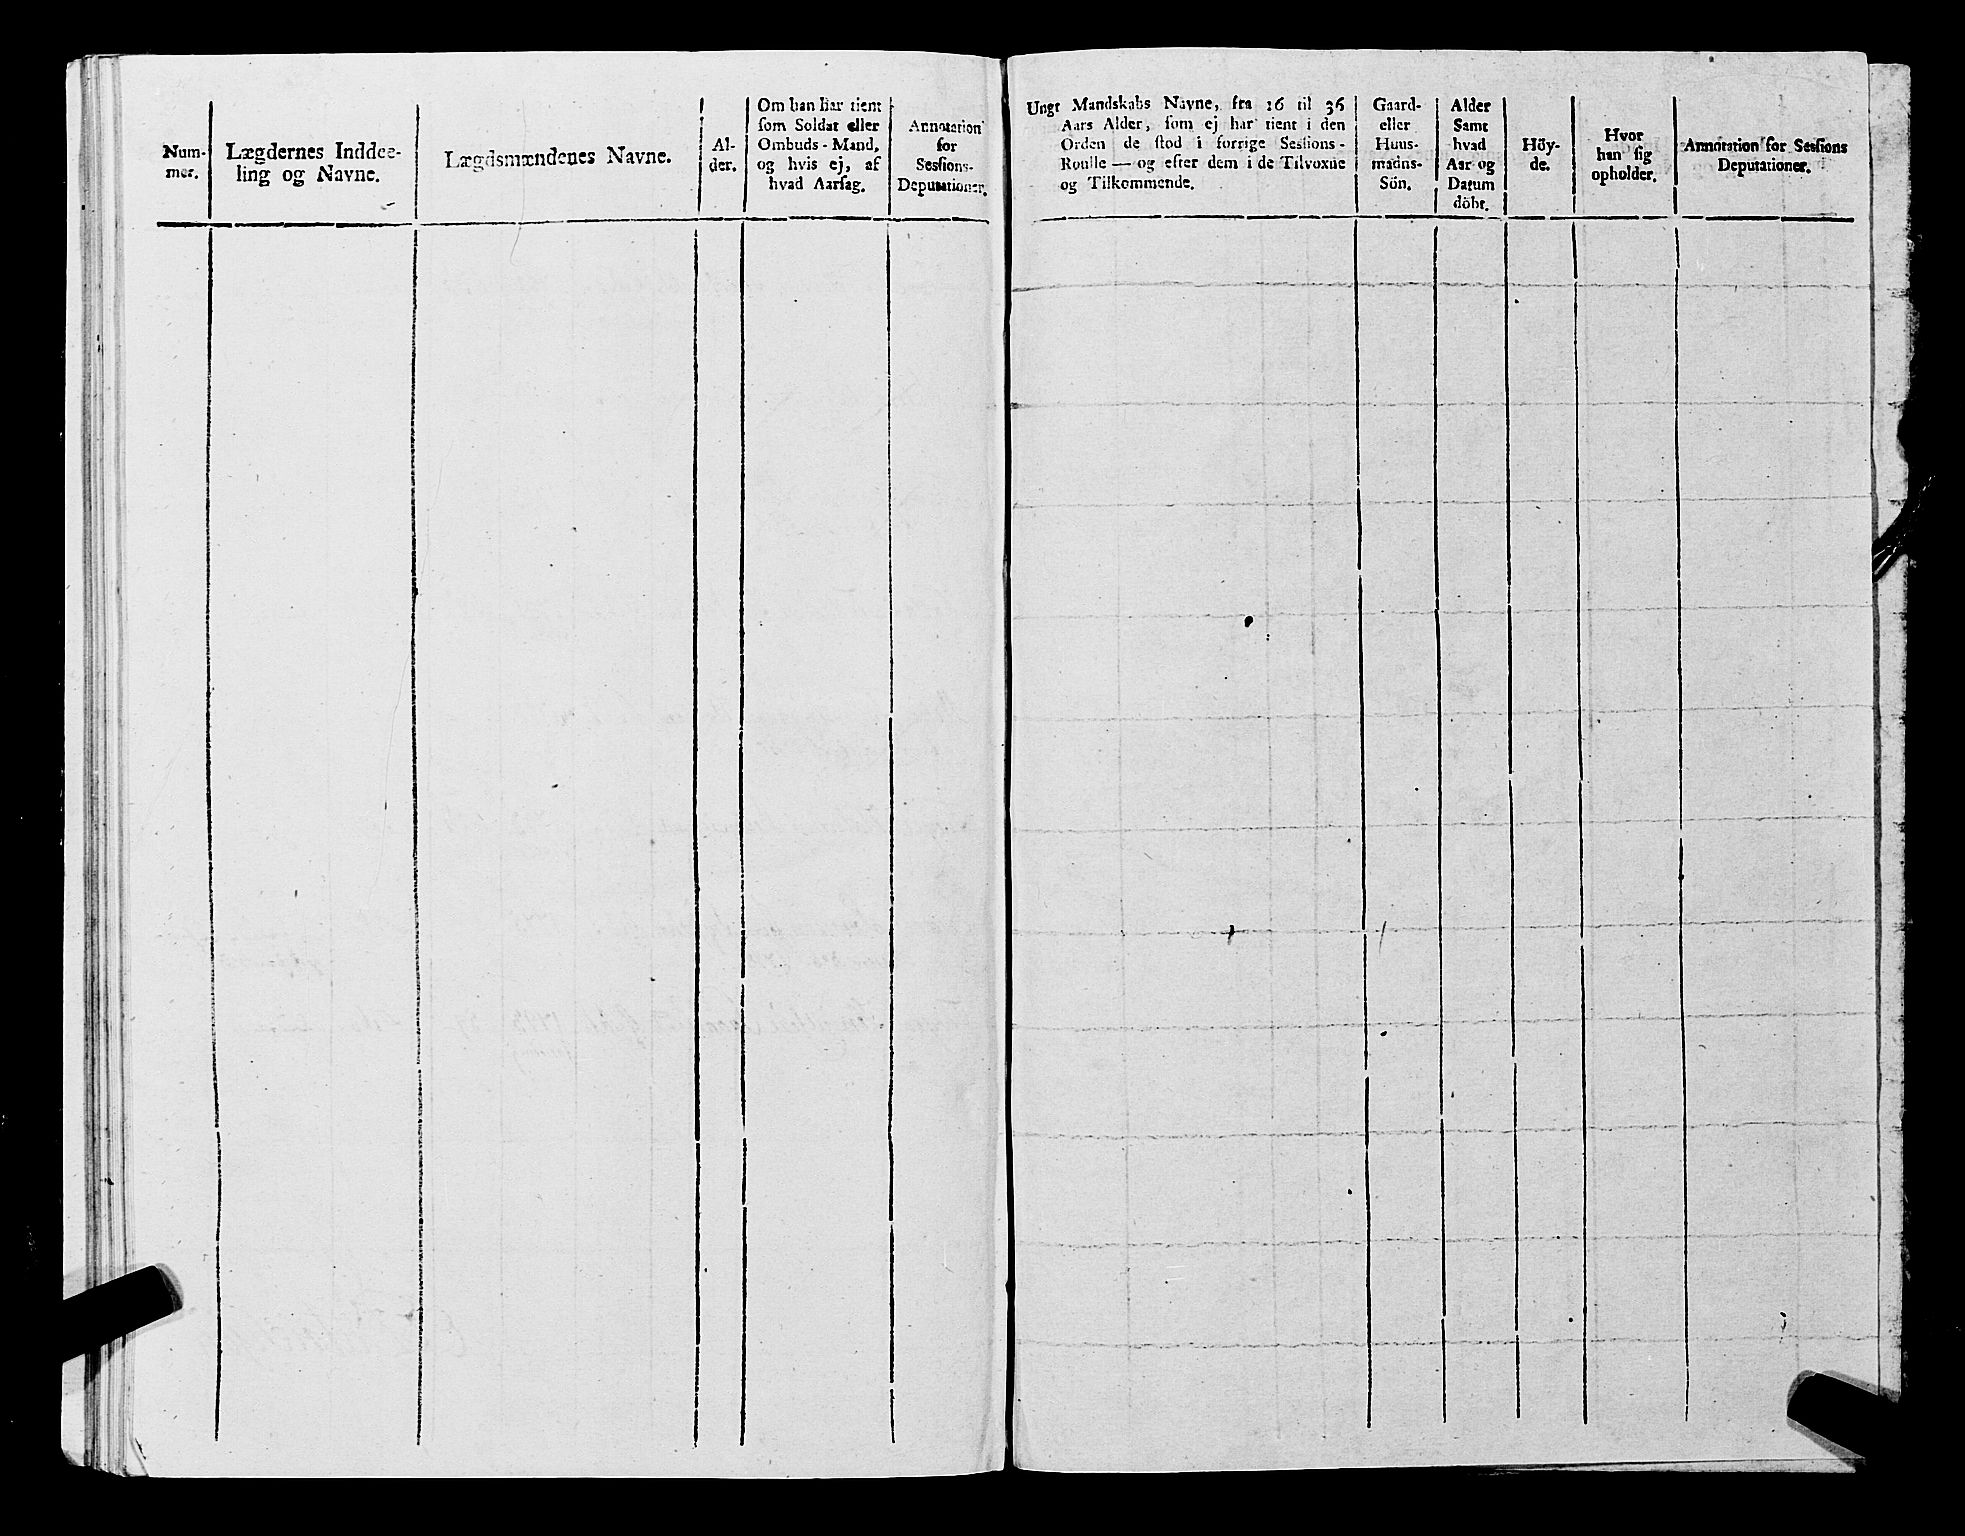 Num-
mer.
Lægdernes Inddee-
ling og Navne.
Lægdsmændenes Navne.
Al-
der.
Om han har tient
som Soldat eller
Ombuds - Mand,
og hvis ej, af
hvad Aarsag.
Annotation
for
Sessions-
Deputationer.
Ungt Mandskabs Navne, fra 16 til 36
Aars Alder, som ej har tient i den
Orden de stod i forrige Sessions-
Roulle — og efter dem i de Tilvoxne
og Tilkommende.
Gaard-
eller
Huus-
mands-
Sön.
Alder
Samt
hvad
Aar og
Datum
döbt.
Höy-
de.
Hvor
han sig
opholder.
Annotation for Sessions
Deputationer.